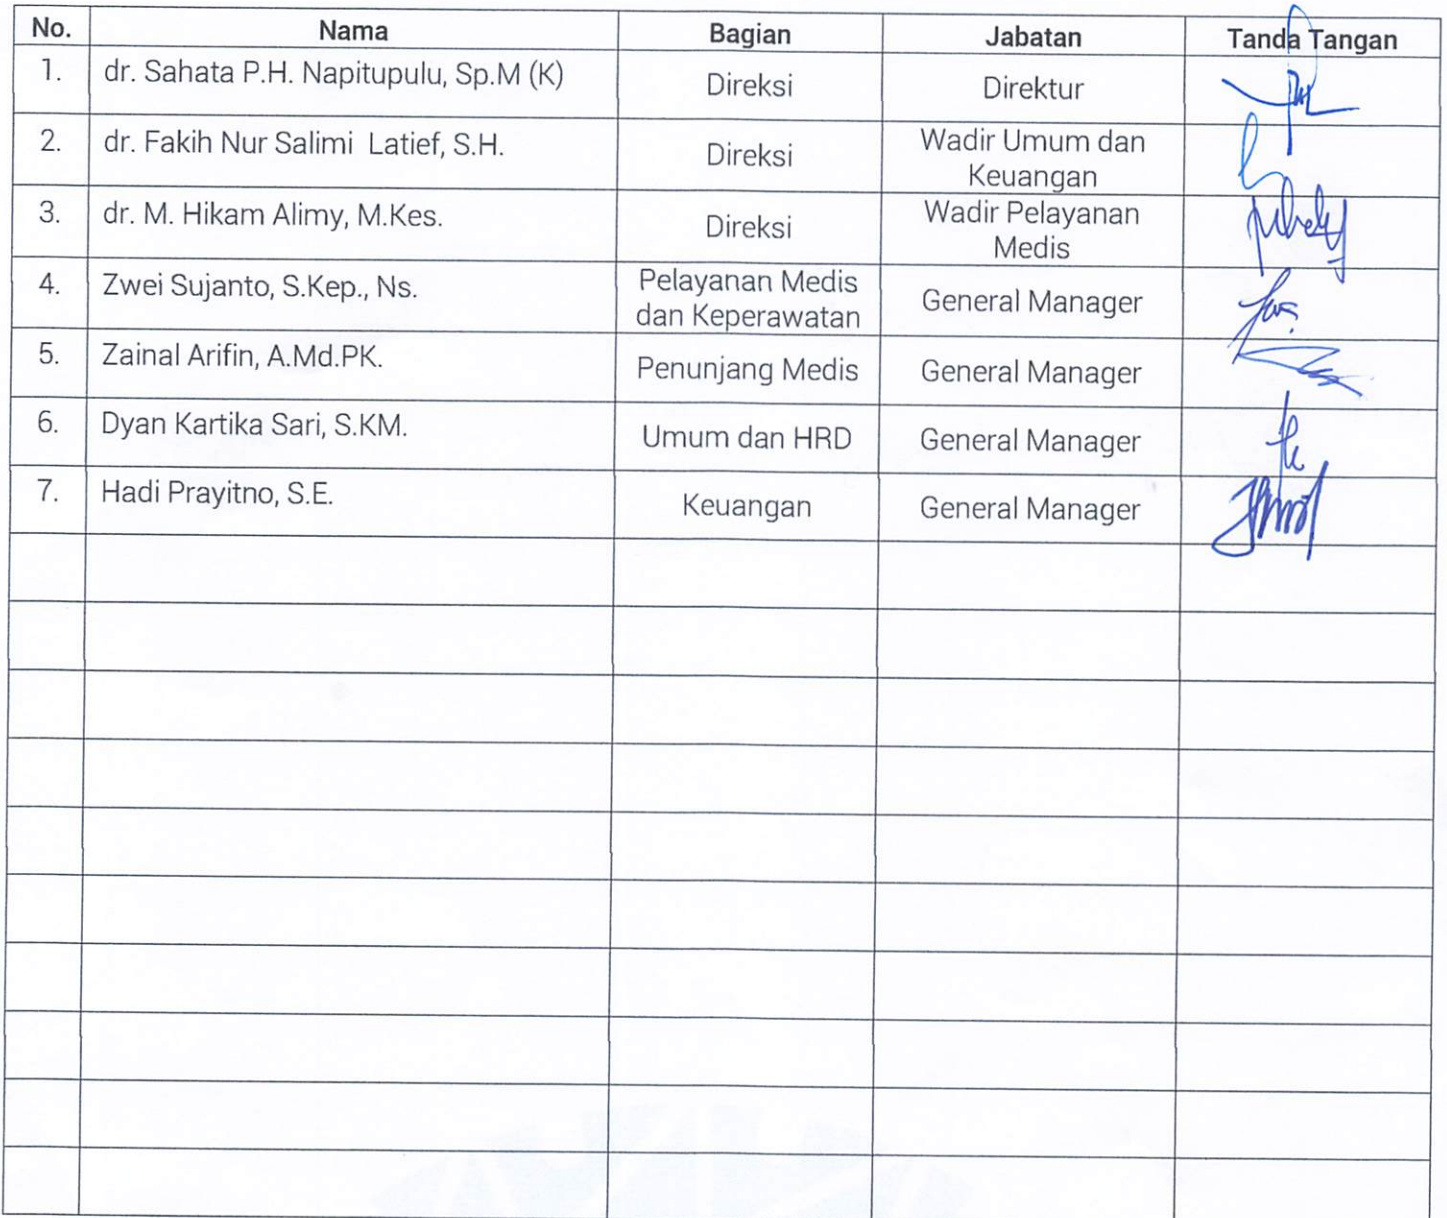 No. Nama Bagian Jabatan Tanda Tangan
1. dr. Sahata P.H. Napitupulu, Sp.M (K) Direksi Direktur
2. dr. Fakih Nur Salimi Latief, S.H. Direksi Wadir Umum dan
Keuangan
3. dr. M. Hikam Alimy, M.Kes. Direksi Wadir Pelayanan
Medis
4. Zwei Sujanto, S.Kep., Ns. Pelayanan Medis
dan Keperawatan General Manager
5. Zainal Arifin, A.Md.PK. Penunjang Medis General Manager
6. Dyan Kartika Sari, S.KM. Umum dan HRD General Manager
7. Hadi Prayitno, S.E. Keuangan General Manager